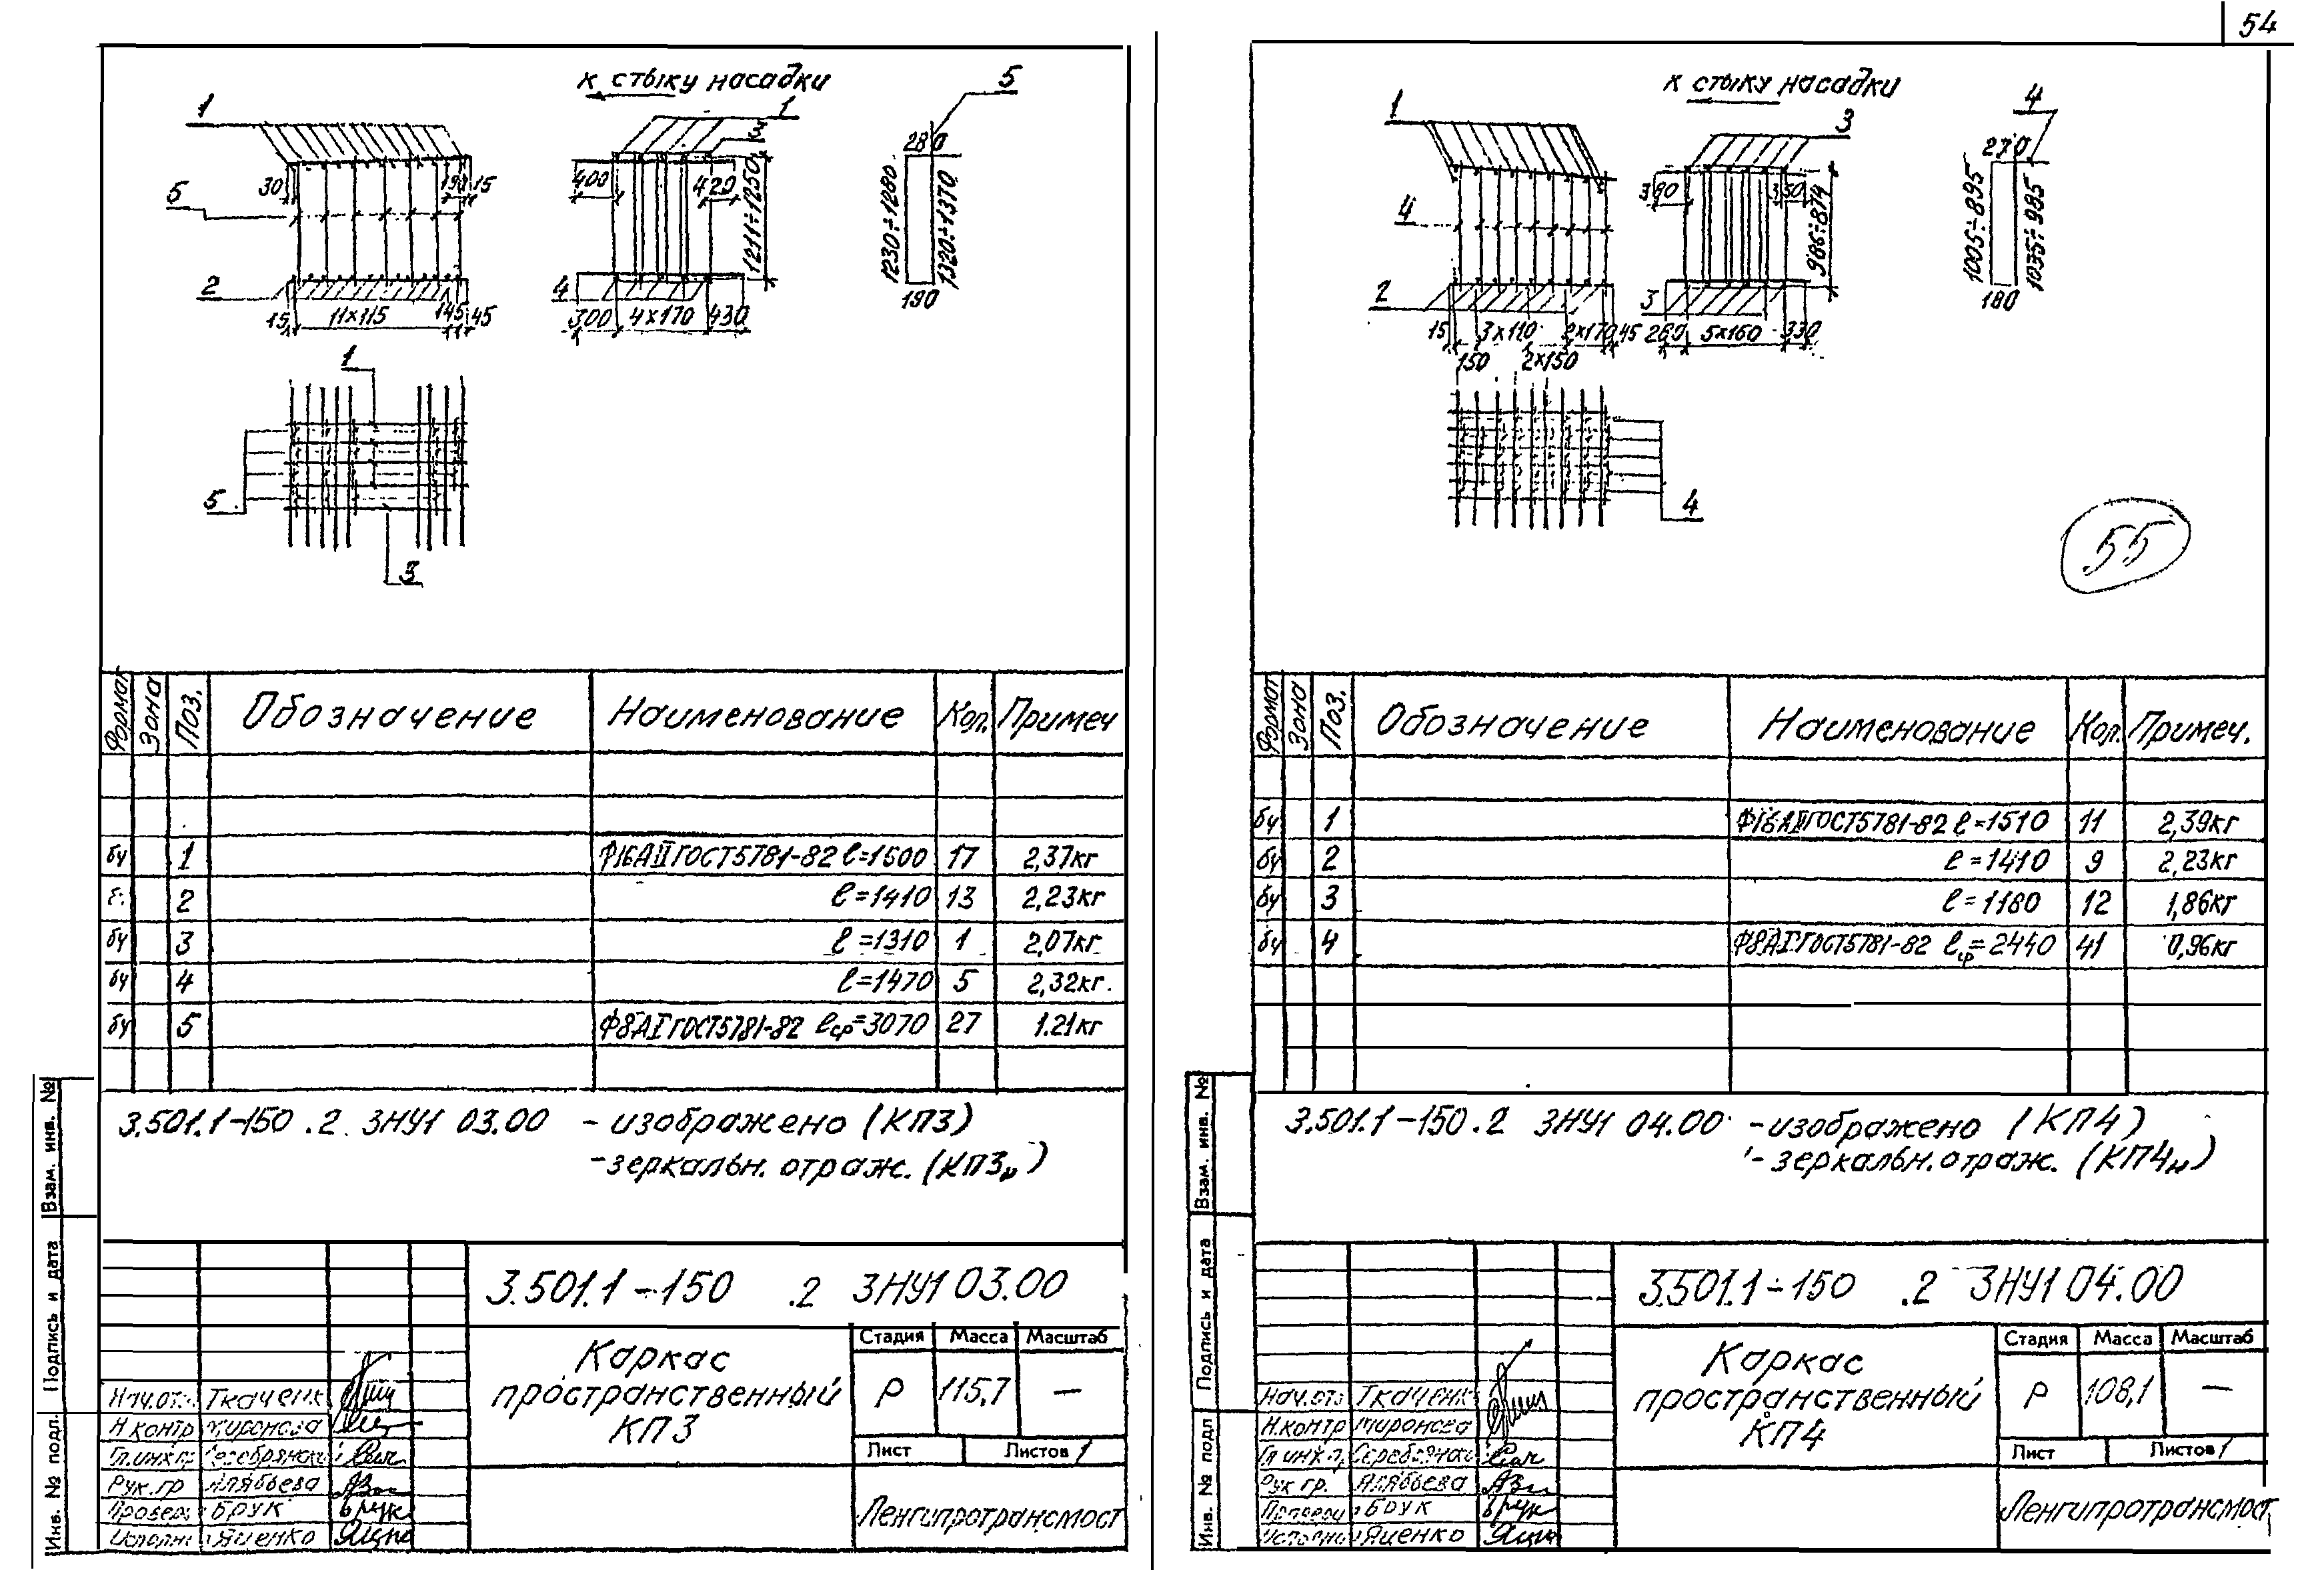 54
к стыку насадки
1
1
3
5
30
190
15
5
2
15
11×115
145
45
400
420
1211÷1250
4
300
4×170
430
280
1230÷1280
1320÷1370
190
1
5
3
Формат Зона Поз. Обозначение Наименование Кол. Примеч
бч 1 Ф16АII ГОСТ5781-82 ℓ=1500 17 2,37кг
2 ℓ=1410 13 2,23кг
бч 3 ℓ=1310 1 2,07кг.
бч 4 ℓ=1470 5 2,32кг.
бч 5 Ф8АI ГОСТ5781-82 ℓср=3070 27 1.21кг
3.501.1-150 .2 3НУ1 03.00 - изображено (КП3)
- зеркальн. отраж. (КП3н)
Взам. инв. №
Подпись и дата
Инв. № подл.
3.501.1-150 .2 3НУ1 03.00
Каркас
пространственный
КП3
Стадия Масса Масштаб
Р 115,7 —
Лист Листов 1
Ленгипротрансмост
Нач.от. Ткаченк
Н.контр Миронова
Гл.инж.п. Серебрянск
Рук.гр Алябьева
Провер. Брук
Исполн Яценко
к стыку насадки
1
3
4
4
2
15
3×110
2×170
45
150
2×150
390
350
986÷874
3
280
5×160
330
270
1005÷895
1035÷985
180
4
55
Формат Зона Поз. Обозначение Наименование Кол. Примеч.
бч 1 Ф16АII ГОСТ5781-82 ℓ=1510 11 2,39кг
бч 2 ℓ=1410 9 2,23кг
бч 3 ℓ=1180 12 1,86кг
бч 4 Ф8АI ГОСТ5781-82 ℓср=2440 41 0,96кг
3.501.1-150.2 3НУ1 04.00 - изображено (КП4)
- зеркальн. отраж. (КП4н)
Взам. инв. №
Подпись и дата
Инв. № подл
3.501.1-150 .2 3НУ1 04.00
Каркас
пространственный
КП4
Стадия Масса Масштаб
Р 108,1 —
Лист Листов 1
Ленгипротрансмост
Нач.отд Ткаченк
Н.контр Миронова
Гл.инж.п. Серебрянс
Рук гр. Алябьева
Провери Брук
Исполни Яценко